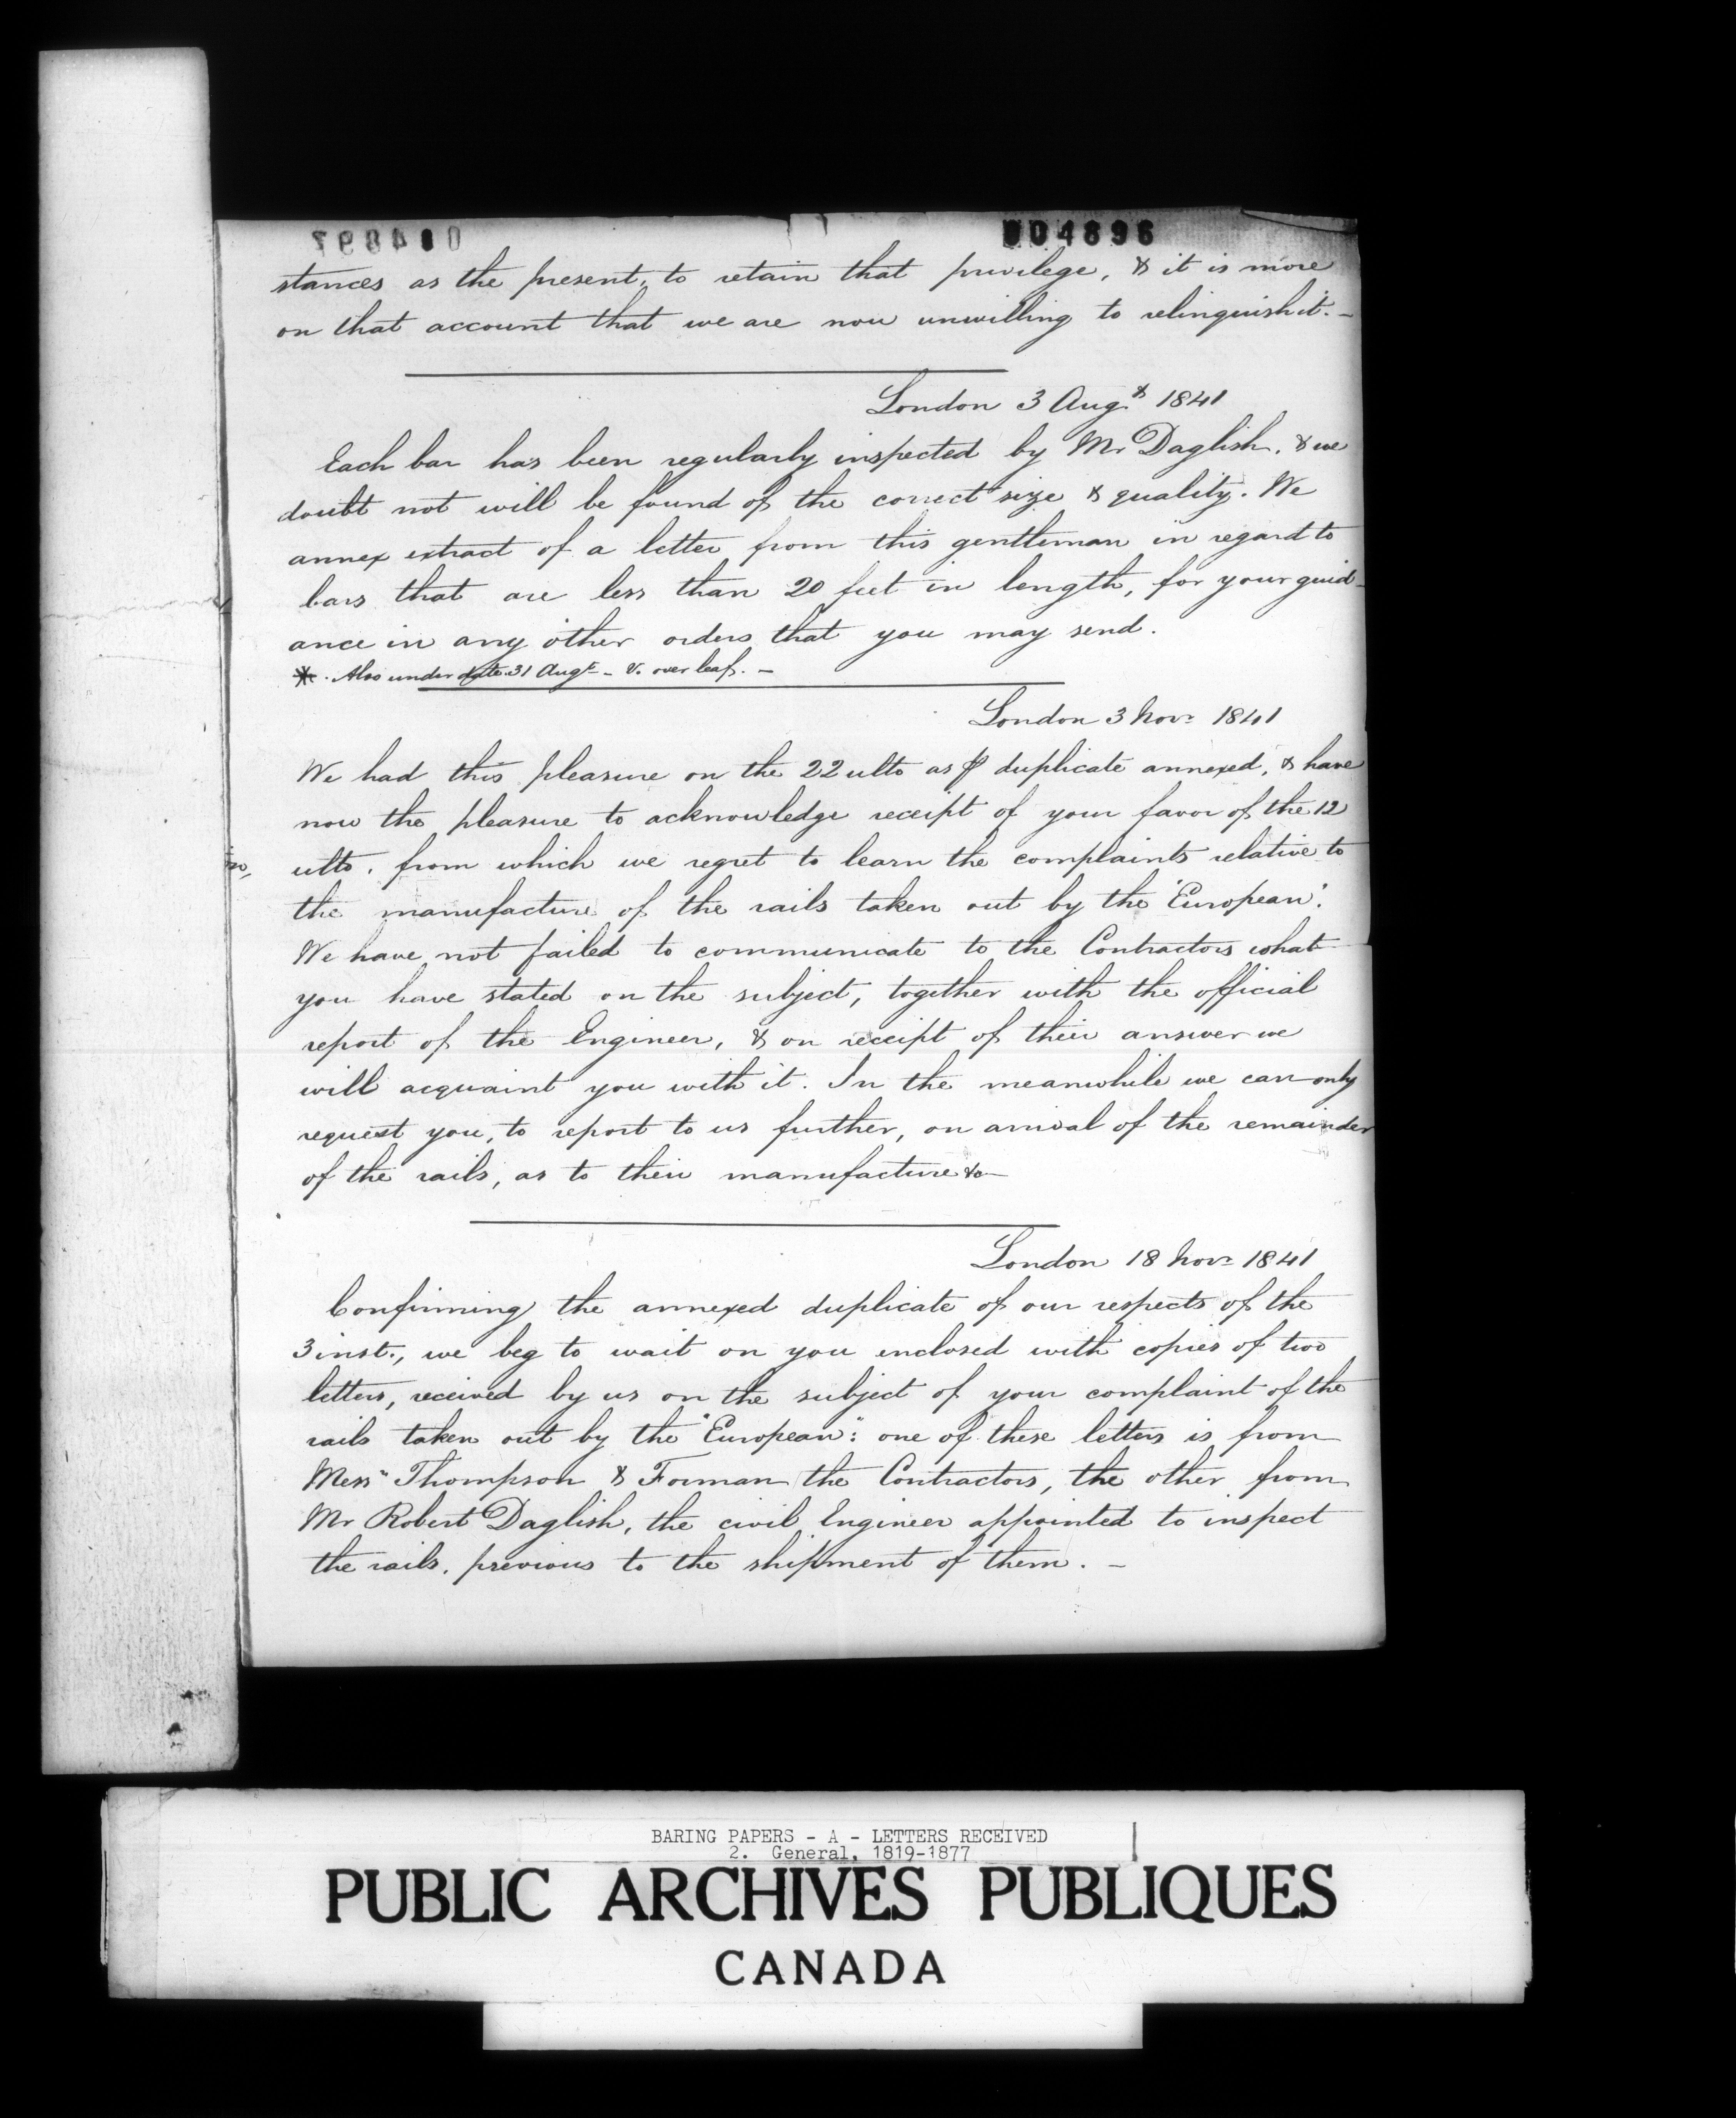 004896
stances as the present, to retain that privilege, & it is more
on that account that we are now unwilling to relinquish it. –
London 3 Augt 1841
Each bar has been regularly inspected by Mr Daglish, & we
doubt not will be found of the correct size & quality. We
annex extract of a letter from this gentleman in regard to
bars that are less than 20 feet in length, for your guid-
ance in any other orders that you may send.
* Also under date 31 Augt – V. over leaf. –
London 3 Novr 1841
We had this pleasure on the 22 ulto as ⅌ duplicate annexed, & have
now the pleasure to acknowledge receipt of your favor of the 12
ulto, from which we regret to learn the complaints relative to
the manufacture of the rails taken out by the "European".
We have not failed to communicate to the Contractors what
you have stated on the subject, together with the official
report of the Engineer, & on receipt of their answer we
will acquaint you with it. In the meanwhile we can only
request you, to report to us further, on arrival of the remainder
of the rails, as to their manufacture &c
London 18 Novr 1841
Confirming the annexed duplicate of our respects of the
3 inst., we beg to wait on you enclosed with copies of two
letters, received by us on the subject of your complaint of the
rails taken out by the "European": one of these letters is from
Messrs Thompson & Forman the Contractors, the other from
Mr Robert Daglish, the civil Engineer appointed to inspect
the rails, previous to the shipment of them. –
BARING PAPERS - A - LETTERS RECEIVED
2. General, 1819-1877
PUBLIC ARCHIVES PUBLIQUES
CANADA